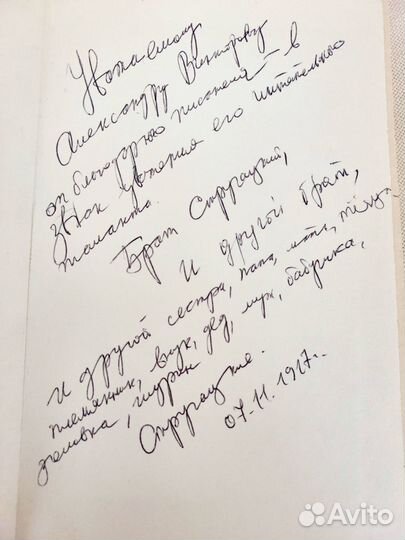 Уважаемому
Александру Викторову
от благодарных писателей – в
знак уважения его читательского
таланта.
Брат Стругацкий,
И другой брат,
И другой сестра, папа, мать, тёща
племянник, внук, дед, муж, бабушка,
золовка, шурин
Стругацкие.
07.11.1917г.
Avito